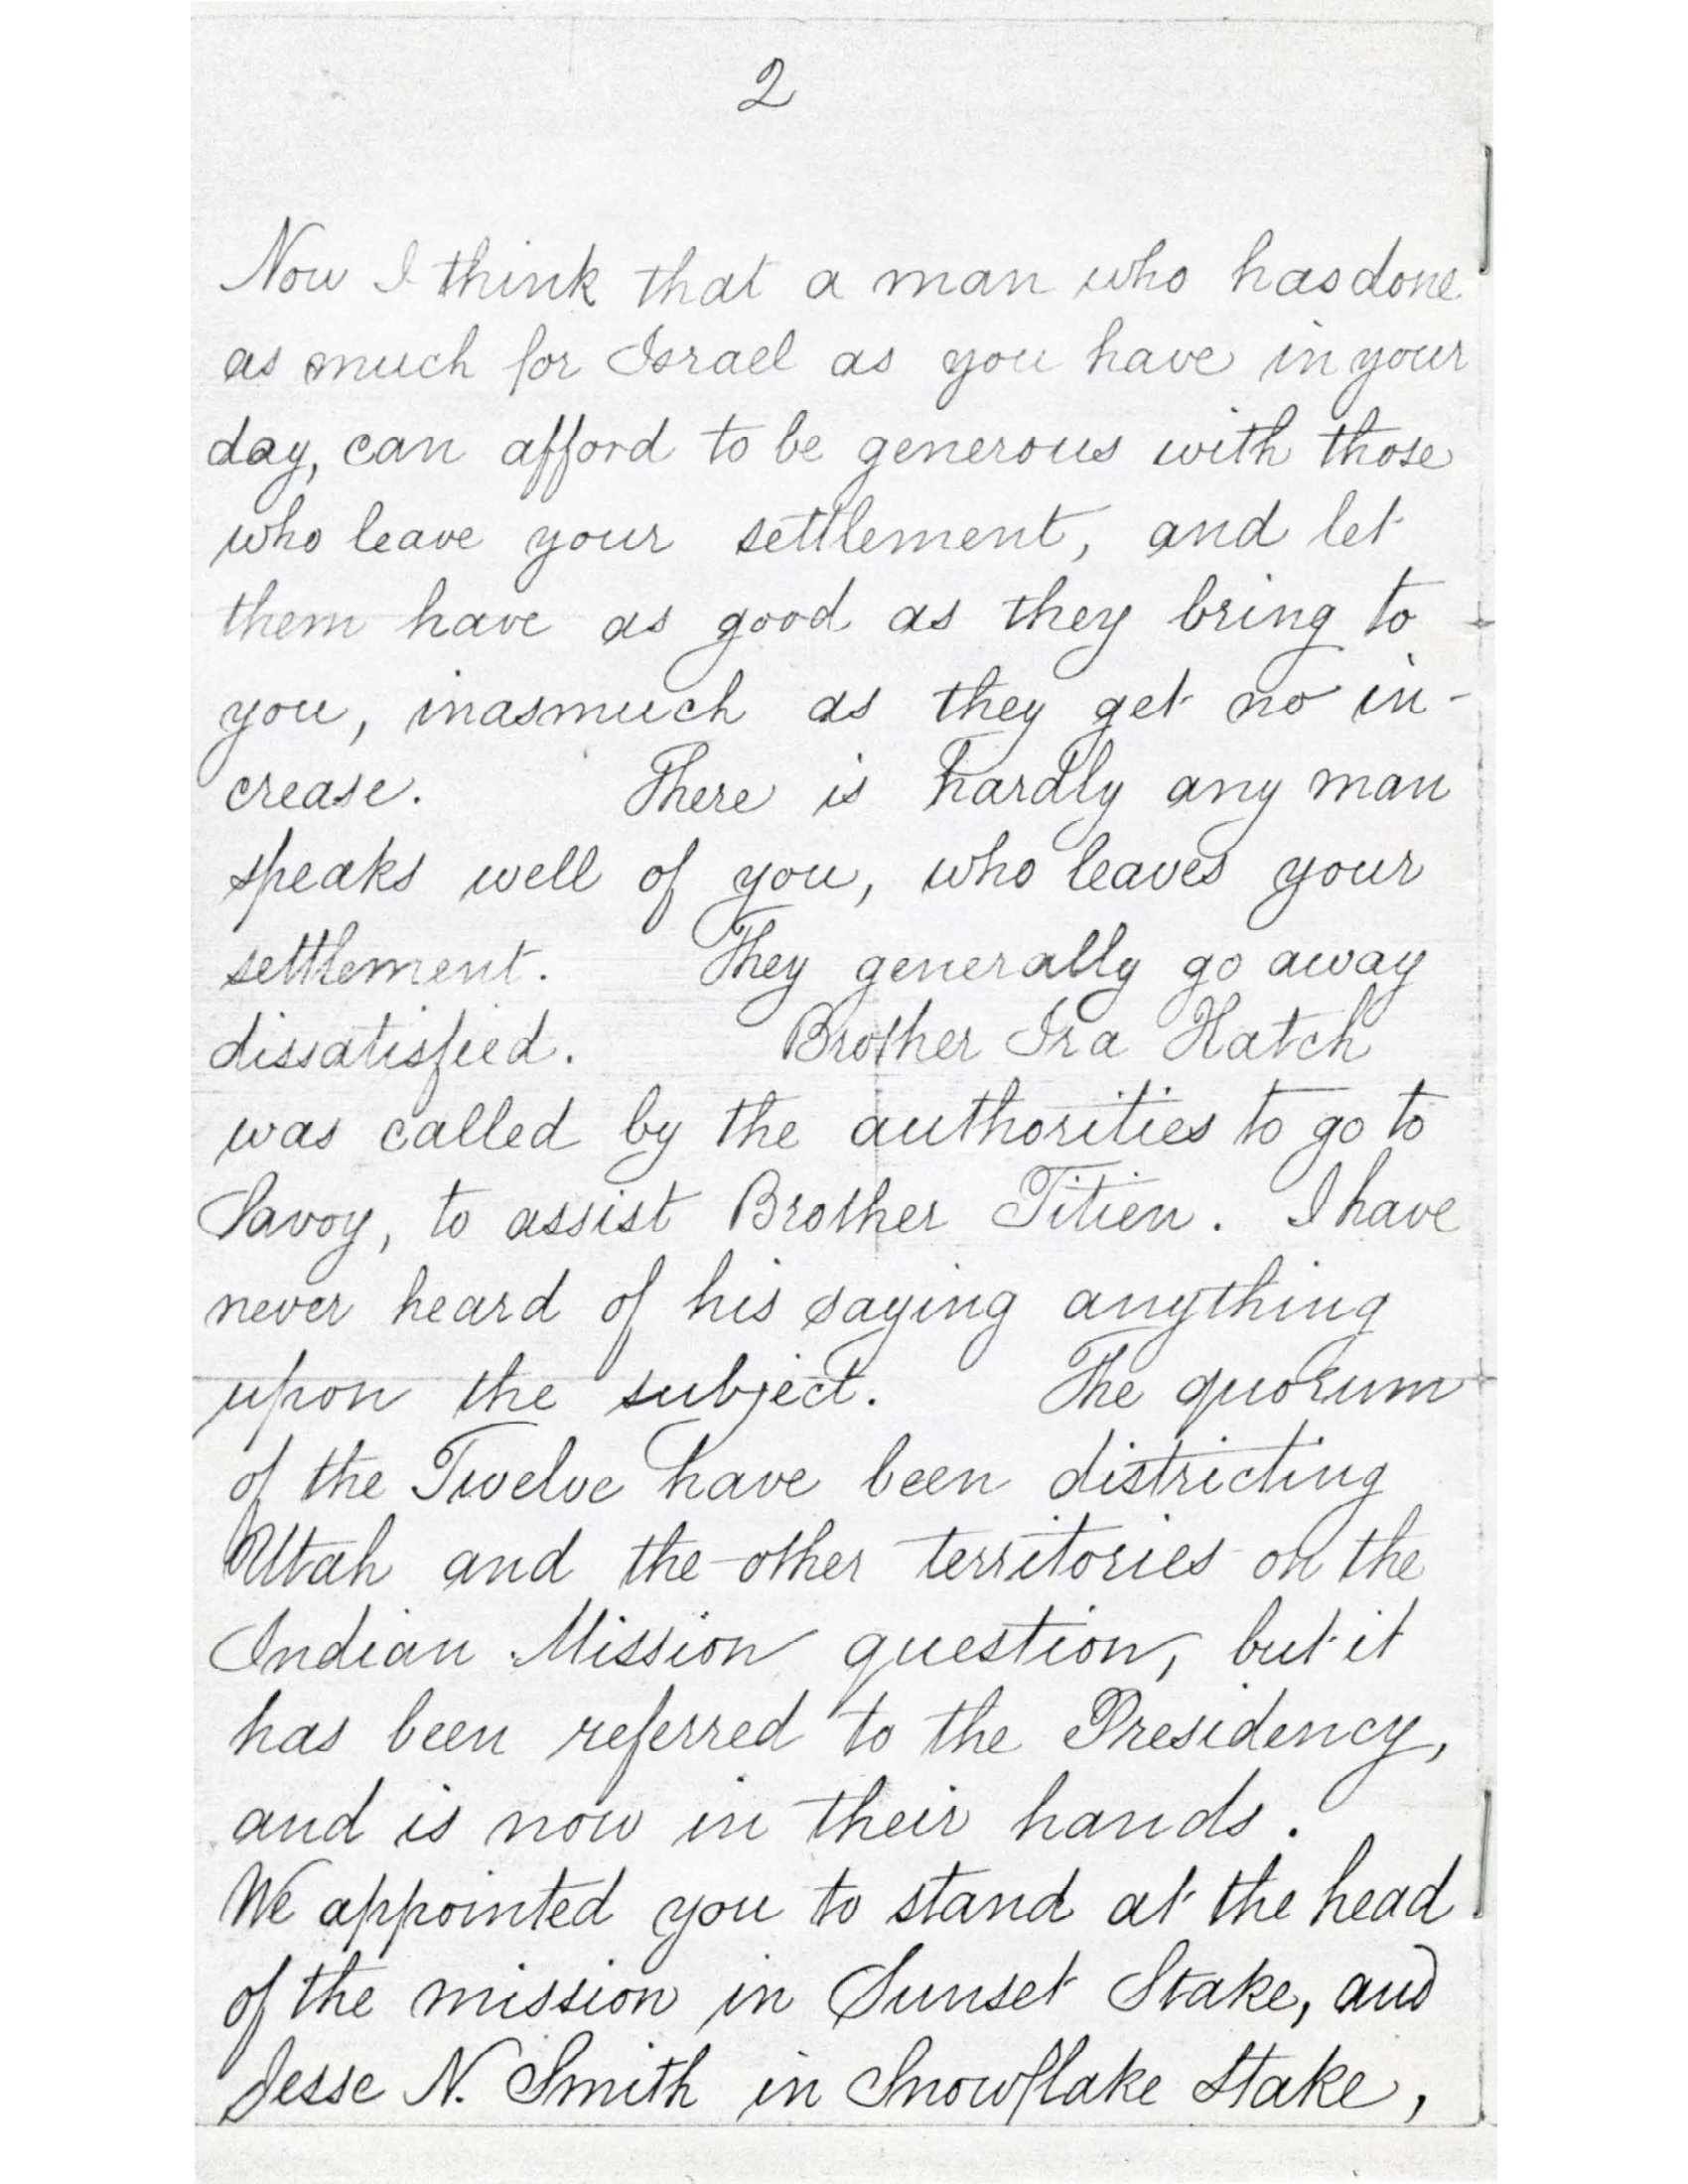 2
Now I think that a man who has done
as much for Israel as you have in your
day, can afford to be generous with those
who leave your settlement, and let
them have as good as they bring to
you, inasmuch as they get no in-
crease. There is hardly any man
speaks well of you, who leaves your
settlement. They generally go away
dissatisfied. Brother Ira Hatch
was called by the authorities to go to
Savoy, to assist Brother Titien. I have
never heard of his saying anything
upon the subject. The quorum
of the Twelve have been districting
Utah and the other territories on the
Indian Mission question, but it
has been referred to the Presidency,
and is now in their hands.
We appointed you to stand at the head
of the mission in Sunset Stake, and
Jesse N. Smith in Snowflake Stake,